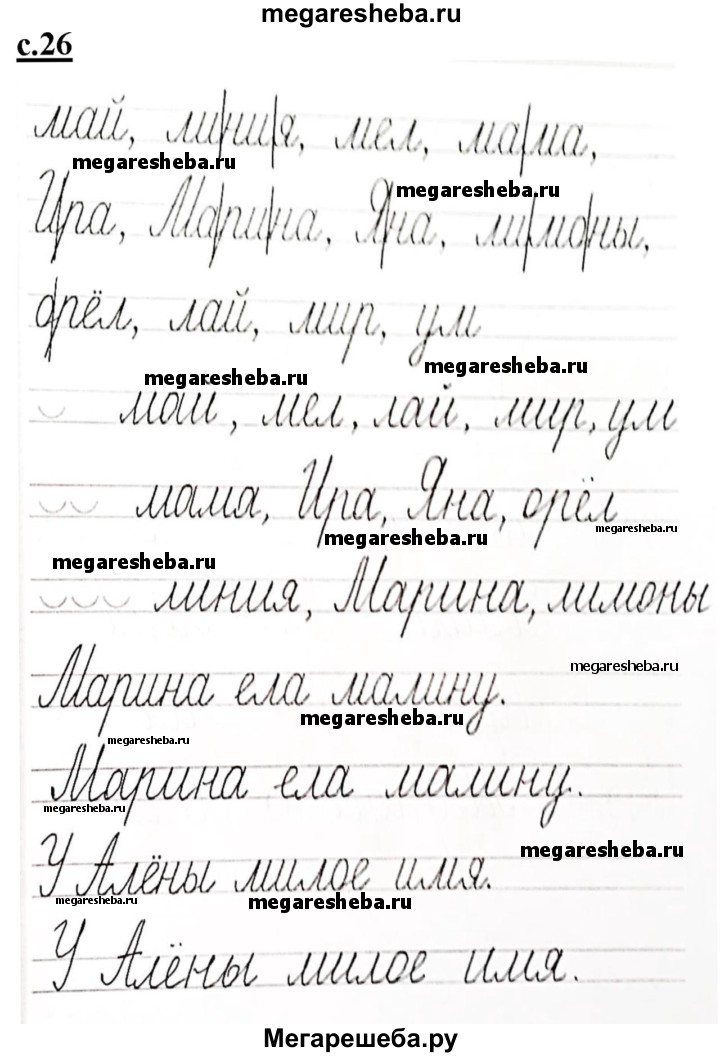 megaresheba.ru
с.26
май, ли|ни|я, мел, ма|ма,
megaresheba.ru
megaresheba.ru
И|ра, Ма|ри|на, Я|на, ли|мо|ны,
о|рёл, лай, мир, ум
megaresheba.ru
megaresheba.ru
май, мел, лай, мир, ум
мама, Ира, Яна, орёл
megaresheba.ru
megaresheba.ru
megaresheba.ru
линия, Марина, лимоны
megaresheba.ru
Марина ела малину.
megaresheba.ru
megaresheba.ru
Марина ела малину.
megaresheba.ru
megaresheba.ru
У Алёны милое имя.
megaresheba.ru
megaresheba.ru
У Алёны милое имя.
Мегарешеба.ру